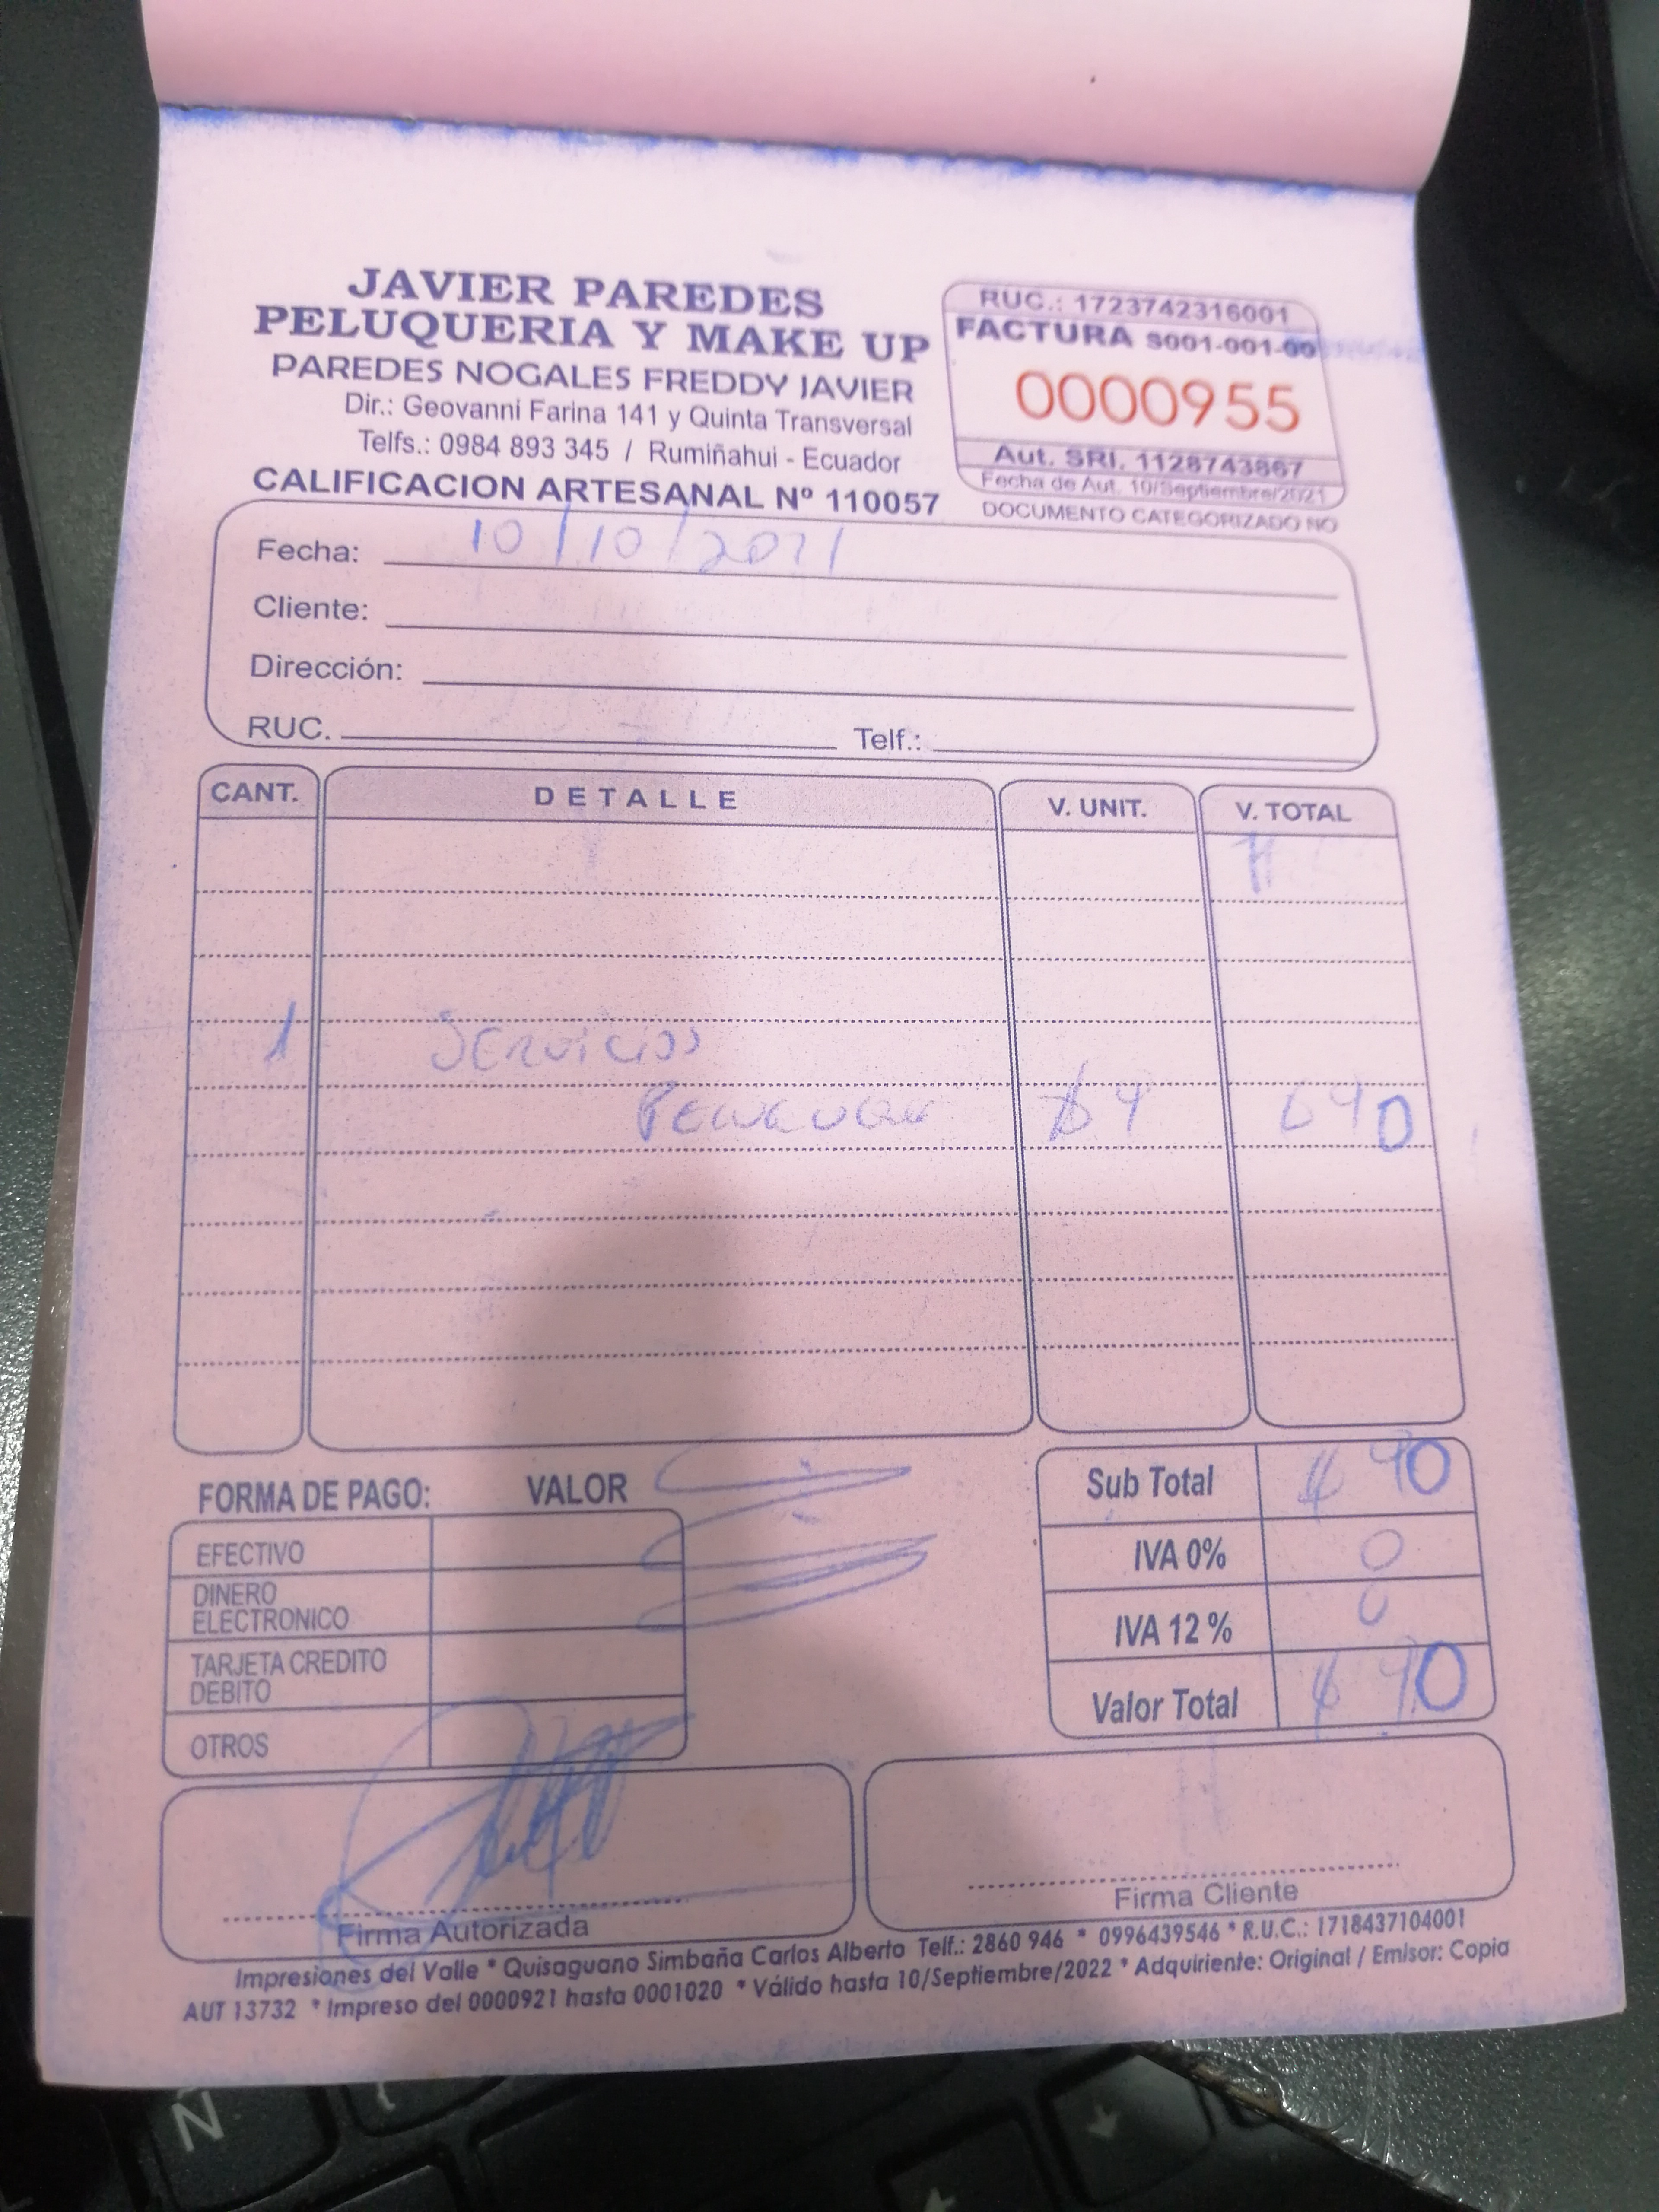 JAVIER PAREDES
PELUQUERIA Y MAKE UP
PAREDES NOGALES FREDDY JAVIER
Dir.: Geovanni Farina 141 y Quinta Transversal
Telfs.: 0984 893 345 / Rumiñahui - Ecuador
CALIFICACION ARTESANAL Nº 110057
RUC.: 1723742316001
FACTURA S001-001-00
0000955
Aut. SRI. 1128743867
Fecha de Aut. 10/Septiembre/2021
DOCUMENTO CATEGORIZADO NO
Fecha: 10/10/2021
Cliente:
Dirección:
RUC. Telf.:
CANT. DETALLE V. UNIT. V. TOTAL
1 Servicios
$4 $40
FORMA DE PAGO: VALOR
EFECTIVO
DINERO
ELECTRONICO
TARJETA CREDITO
DEBITO
OTROS
Sub Total $ 40
IVA 0% 0
IVA 12% 0
Valor Total $ 40
Firma Autorizada
Firma Cliente
Impresiones del Valle * Quisaguano Simbaña Carlos Alberto Telf.: 2860 946 * 0996439546 * R.U.C.: 1718437104001
AUT 13732 * Impreso del 0000921 hasta 0001020 * Válido hasta 10/Septiembre/2022 * Adquiriente: Original / Emisor: Copia
Ñ